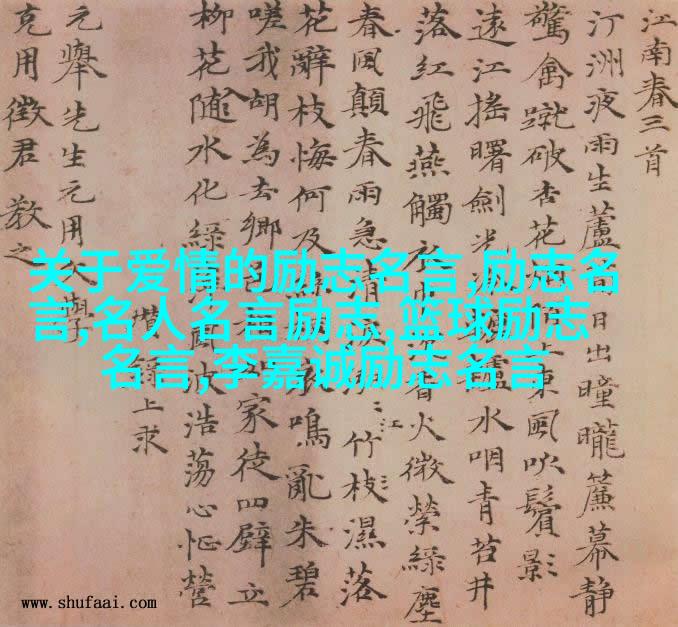 江南春三首
汀洲夜雨生蘆日出曈曨簾幕靜
驚禽蹴破杏花東風吹鬢影
遠江搖曙劍光轤水咽青苔井
落紅飛燕觸衣香火微縈綠塵
春風顛春雨急清江竹枝濕落
花辭枝悔何及鳴亂朱碧
嗟我胡為去鄉家徒四壁立
柳花隨水化綠風波浩蕩心怔營
瓚錄上求
元舉先生元用文學
克用徵君教之
关于爱情的励志名言,励志名
言,名人名言励志,篮球励志
名言,李嘉诚励志名言
www.shufaai.com